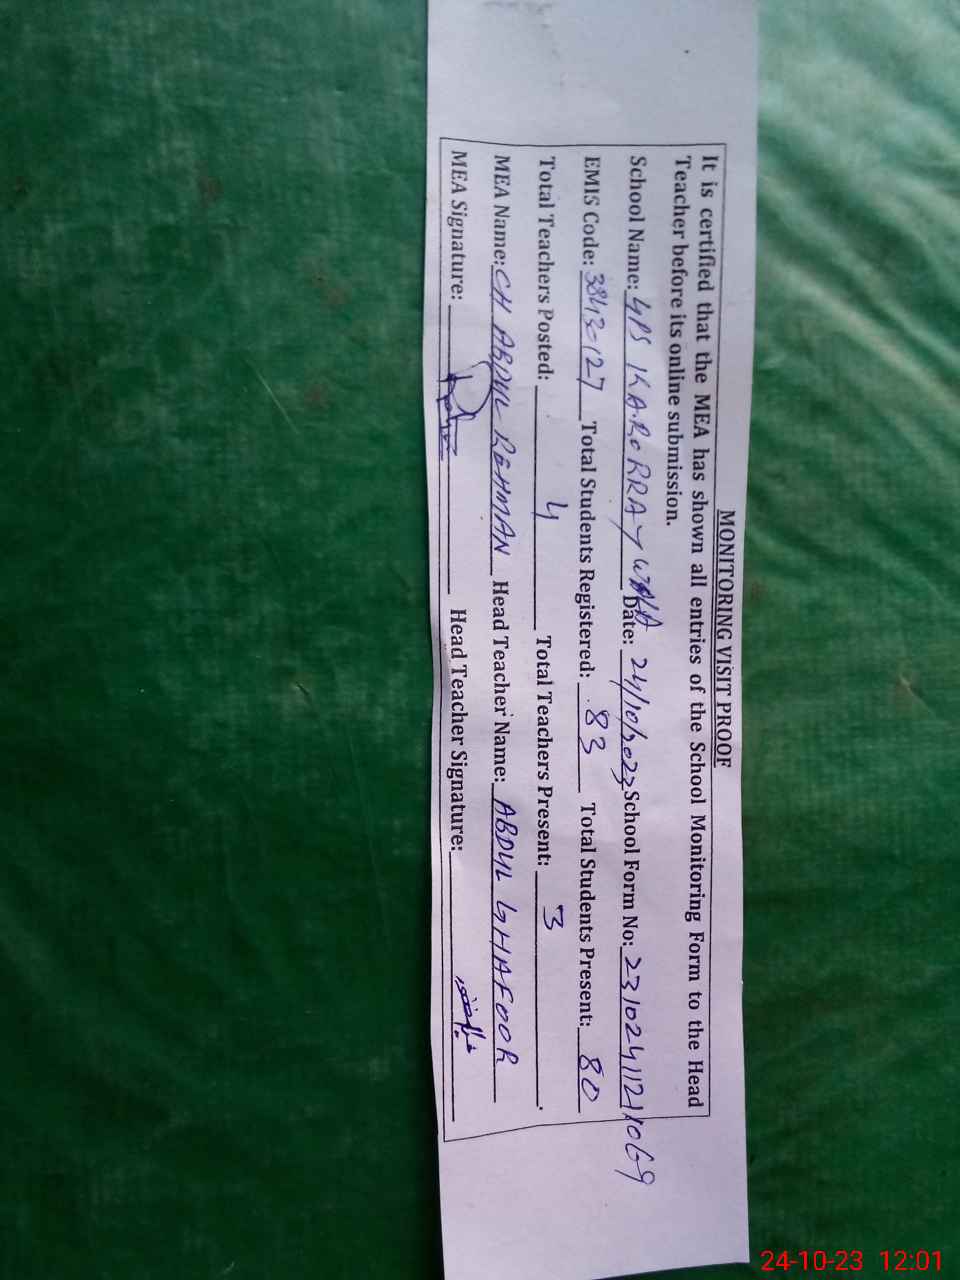 MONITORING VISIT PROOF
It is certified that the MEA has shown all entries of the School Monitoring Form to the Head
Teacher before its online submission.
School Name: GPS KARORRAY WALA Date: 24/10/2023 School Form No: 
EMIS Code: 38430127 Total Students Registered: 83 Total Students Present: 80
Total Teachers Posted: 4 Total Teachers Present: 3.
MEA Name: CH ABDUL REHMAN Head Teacher Name: ABDUL GHAFOOR
MEA Signature: Head Teacher Signature:
24-10-23 12:01